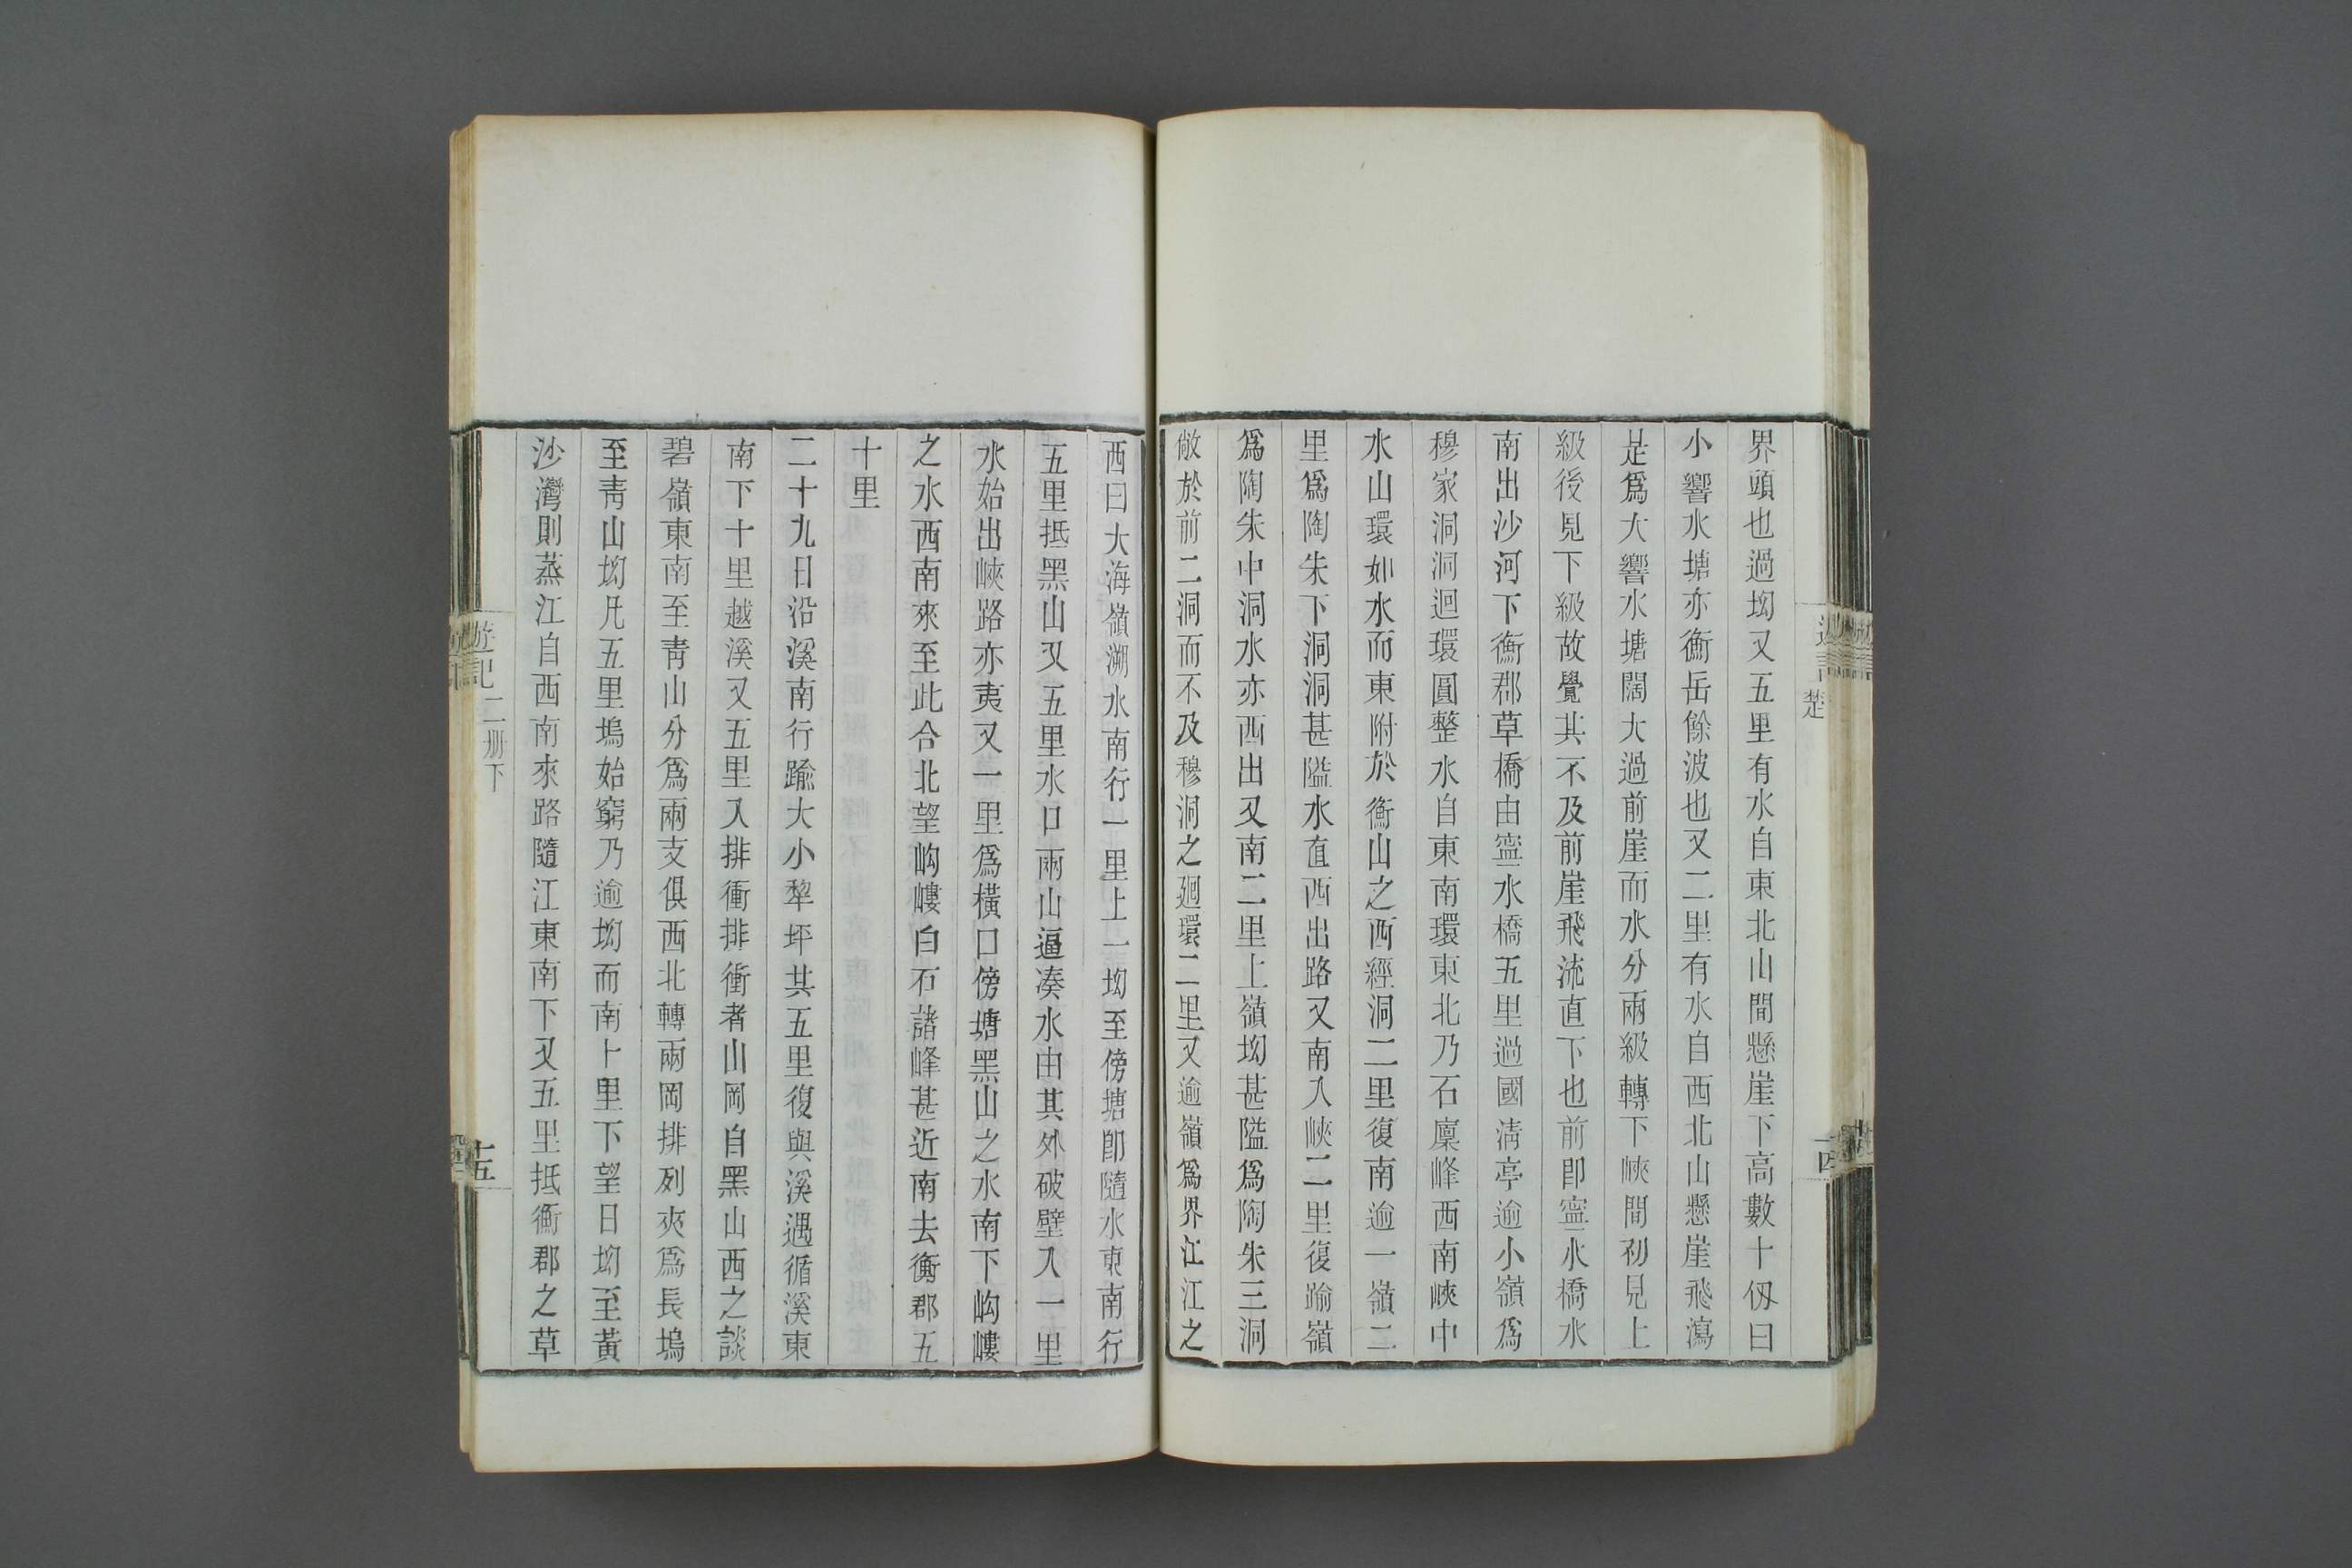 界頭也過坳又五里有水自東北山間懸崖下高數十仭曰
小響水塘亦衡岳餘波也又二里有水自西北山懸崖飛瀉
是爲大響水塘闊大過前崖而水分兩級轉下峽間初見上
級後見下級故覺其不及前崖飛流直下也前卽寍水橋水
南出沙河下衡郡草橋由寍水橋五里過國淸亭逾小嶺爲
穆家洞洞迴環圓整水自東南環東北乃石廩峰西南峽中
水山環如水而東附於衡山之西經洞二里復南逾一嶺二
里爲陶朱下洞洞甚隘水直西出路又南入峽二里復踰嶺
爲陶朱中洞水亦西出又南二里上嶺坳甚隘爲陶朱三洞
敞於前二洞而不及穆洞之廻環二里又逾嶺爲界江江之
遊記
楚
十四
西曰大海嶺溯水南行一里上一坳至傍塘卽隨水東南行
五里抵黑山又五里水口兩山逼凑水由其外破壁入一里
水始出峽路亦夷又一里爲橫口傍塘黑山之水南下岣嶁
之水西南來至此合北望岣嶁白石諸峰甚近南去衡郡五
十里
二十九日沿溪南行踰大小犂坪共五里復與溪遇循溪東
南下十里越溪又五里入排衝排衝者山岡自黑山西之談
碧嶺東南至靑山分爲兩支俱西北轉兩岡排列夾爲長塢
至靑山坳凡五里塢始窮乃逾坳而南十里下望日坳至黃
沙灣則蒸江自西南來路隨江東南下又五里抵衡郡之草
遊記
二册下
十五